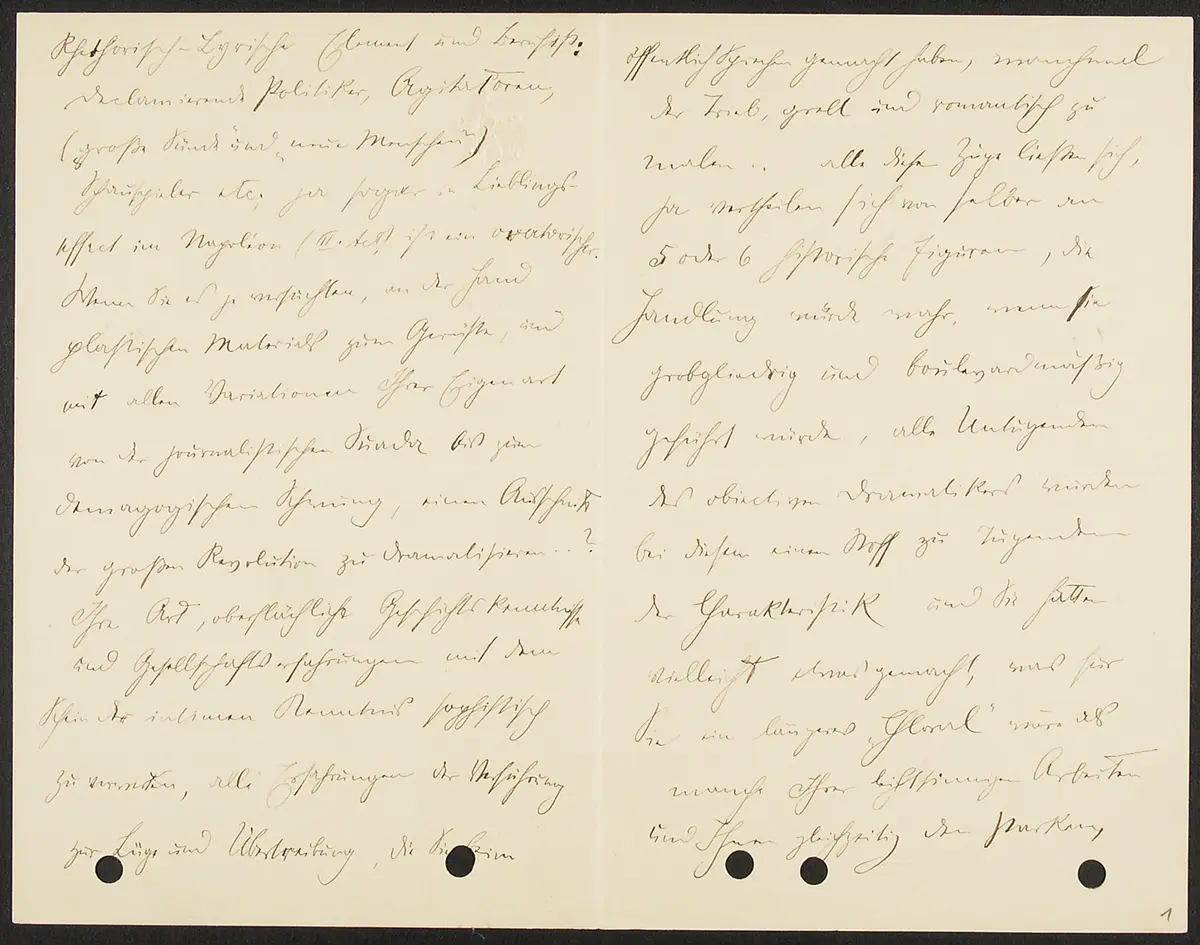 Rhethorisch-Lyrische Element und
declamierende Politiker, Agitatoren,
(große Sünde" und „neue Menschen")
Schauspieler etc, ja sogar Lieblings-
effect im Napoléon (II. Act) ist ein oratorischer.
Wenn Sie es je versuchten, an der Hand
plastischen Materials zum Gerüste, und
mit allen Variationen Ihrer Eigenart
von der journalistischen Suada bis zum
demagogischen Schwung, einen Ausschnitt
der großen Revolution zu dramatisieren..?
Ihre Art, oberflächliche Geschichtskenntnisse
und Gesellschaftserfahrungen mit dem
Schein der intimen Kenntnis sophistisch
zu verwerten, alle Erfahrungen der Verführung
zur Lüge und Übertreibung, die Sie beim
öffentlich Sprechen gemacht haben, manchmal
der Trieb, grell und romantisch zu
malen.. alle diese Züge ließen sich,
ja vertheilen sich von selber an
5 oder 6 historische Figuren, die
Handlung würde wahr, wenn sie
grobgliedrig und boulevardmäßig
geführt würde, alle Untugenden
des objectiven Dramatikers würden
bei diesem einen Stoff zu Tugenden
der Charakteristik und Sie hätten
vielleicht etwas gemacht, was für
Sie ein längeres „Chloral" wäre als
manche Ihrer leichtsinnigen Arbeiten
und Ihnen gleichzeitig den starken,
1